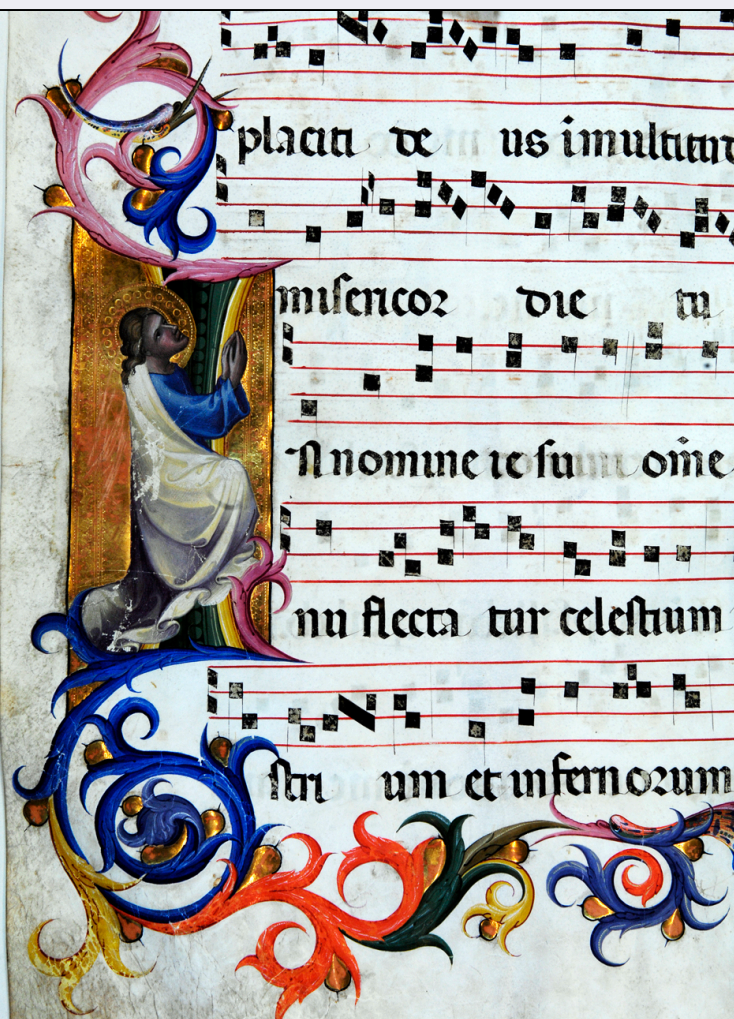 placiti de us ī multitud
misericor die tu
IN nomine ie su om̄e
nu flecta tur celestium
stri um et infernorum